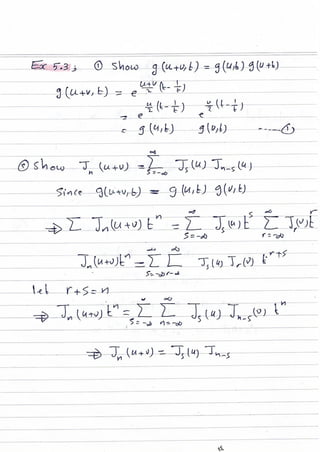 Ex 5.3; ① Show g(u+v,t) = g(u,t) g(v,t)
g(u+v,t) = e^{\frac{u+v}{2}(t-\frac{1}{t})}
= e^{\frac{u}{2}(t-\frac{1}{t})} e^{\frac{v}{2}(t-\frac{1}{t})}
= g(u,t) g(v,t) ----①
② Show J_n(u+v) = \sum_{s=-∞}^{∞} J_s(u) J_{n-s}(u)
Since g(u+v,t) = g(u,t) g(v,t)
⇒ ∑ J_n(u+v) t^n = \sum_{s=-∞}^{∞} J_s(u) t^s \sum_{r=-∞}^{∞} J_r(v) t^r
J_n(u+v)t^n = \sum_{s=-∞}^{∞} \sum_{r=-∞}^{∞} J_s(u) J_r(v) t^{r+s}
let r+s=n
⇒ J_n(u+v) t^n = \sum_{s=-∞}^{∞} \sum_{n=-∞}^{∞} J_s(u) J_{n-s}(v) t^n
⇒ J_n(u+v) = J_s(u) J_{n-s}